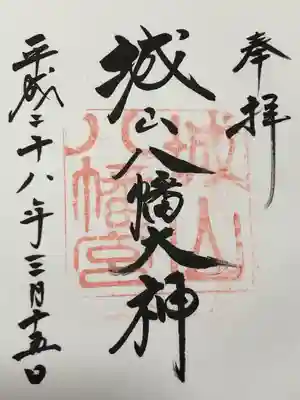 奉拝
城山八幡大神
城山
八幡宮
平成二十八年三月十五日